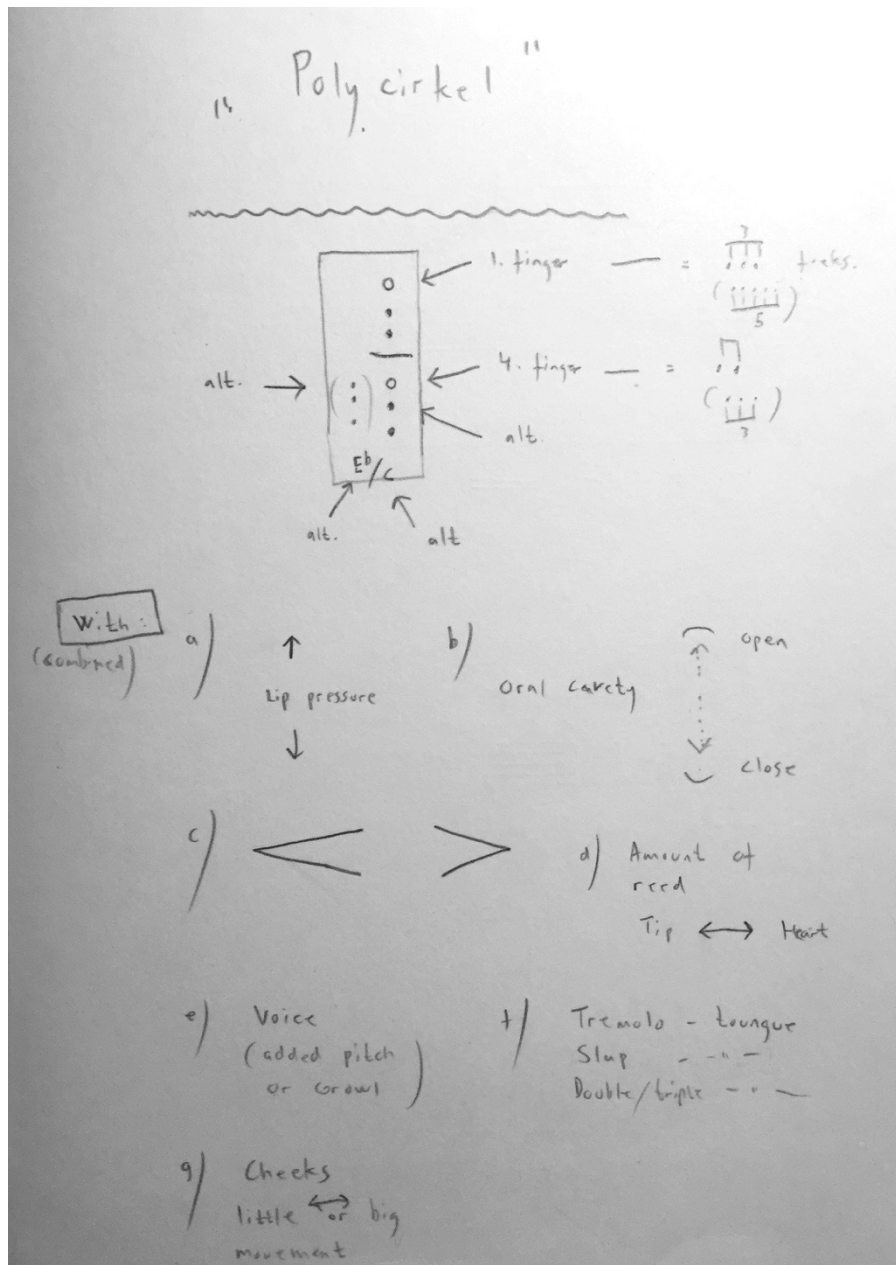 " Poly cirkel "
1. finger = 3 f.eks.
( 5 )
4. finger =
( 3 )
alt.
alt.
Eb/C
alt. alt
With:
(combined)
a) Lip pressure
b) Oral cavety
open
close
c)
d) Amount of
reed
Tip ↔ Heart
e) Voice
(added pitch
or Growl)
f) Tremolo - toungue
Slap - " -
Double/triple - " -
g) Cheeks
little ↔ or big
movement